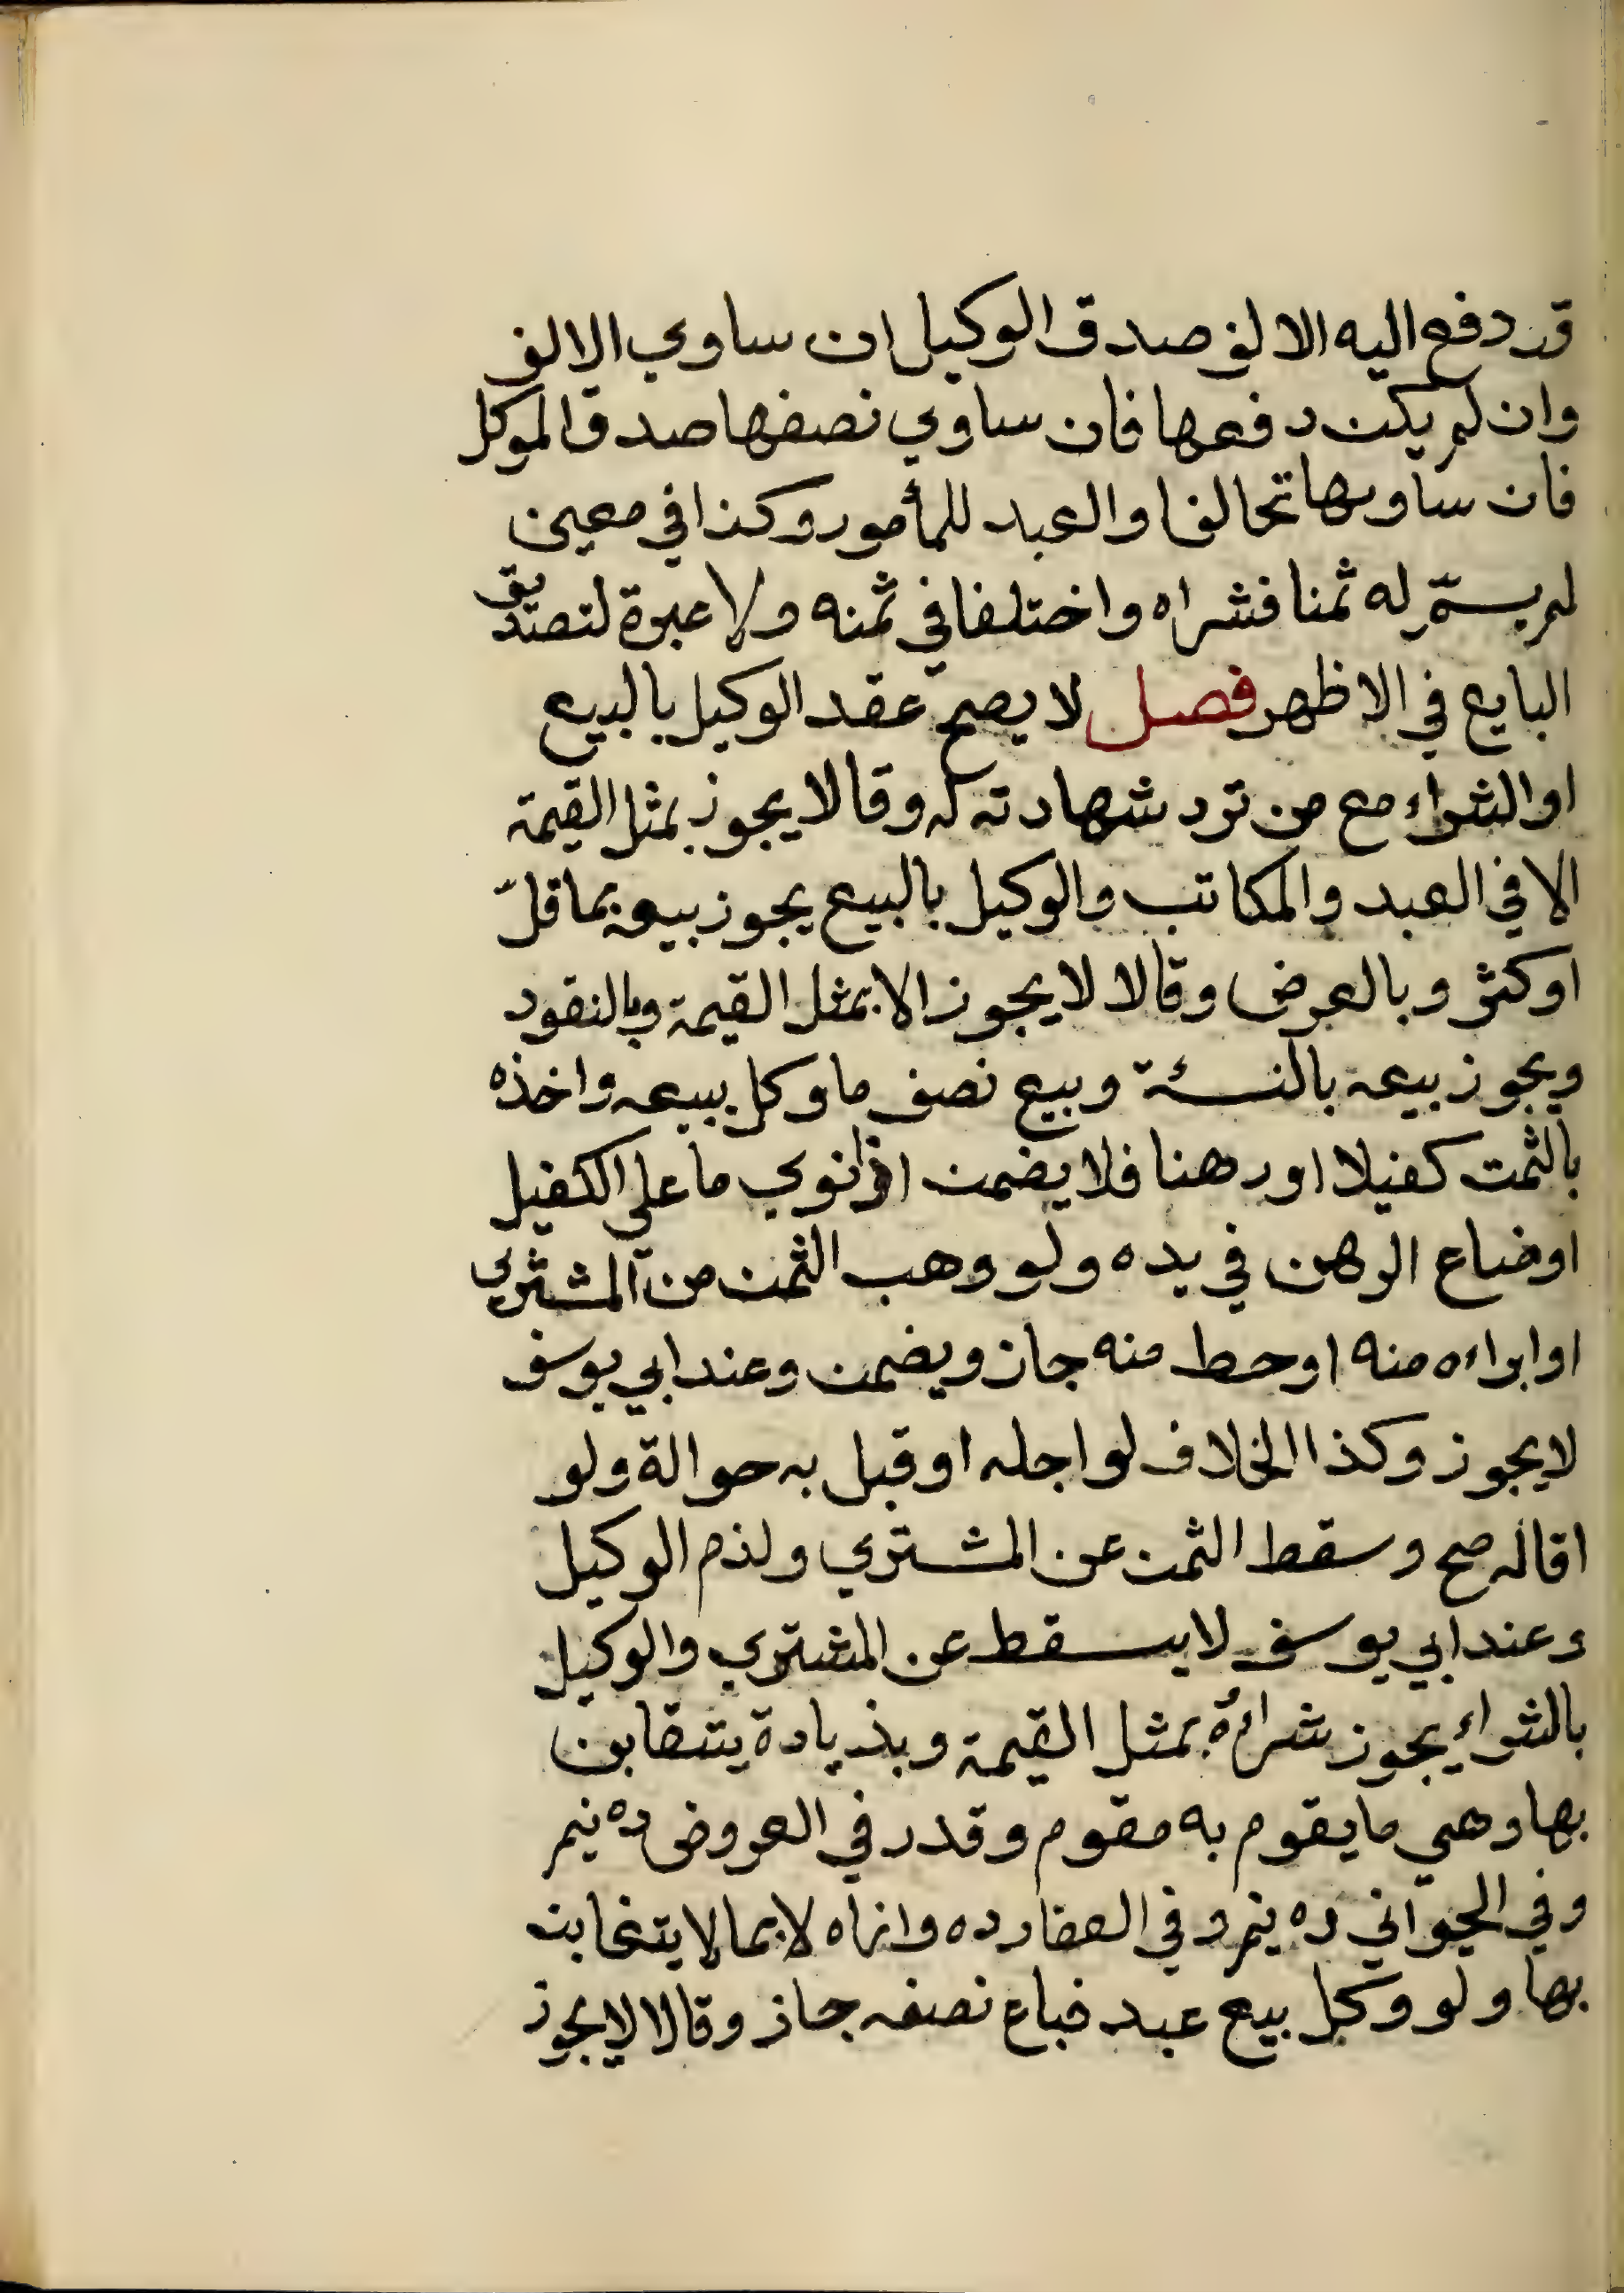 قد دفع اليه الالف صدق الوكيل ان ساوي الالف
وان لم يكن دفعها فان ساوي نصفها صدق الموكل
فان ساويها تحالفا والعبد للمأمور وكذا في معين
لم يسمّ له ثمنا فشراه واختلفا في ثمنه ولا عبرة لتصديق
البايع في الاظهر فصل لا يصح عقد الوكيل بالبيع
او الشراء مع من ترد شهادته له وقالا يجوز بمثل القيمة
الا في العبد والمكاتب والوكيل بالبيع يجوز بيعه بما قلّ
او كثر وبالعرض وقالا لا يجوز الا بمثل القيمة وبالنقود
ويجوز بيعه بالنسئة وبيع نصف ما وكل ببيعه واخذه
بالثمن كفيلا او رهنا فلا يضمن اذا نوي ما على الكفيل
او ضاع الرهن في يده ولو وهب الثمن من المشتري
او ابراءه منه او حط منه جاز ويضمن وعند ابي يوسف
لا يجوز وكذا الخلاف لو اجله او قبل به حوالة ولو
اقاله صح وسقط الثمن عن المشتري ولذم الوكيل
وعند ابي يوسف لا يسقط عن المشتري والوكيل
بالشراء يجوز شراؤه بمثل القيمة وبذيادة يتقابن
بها وهي ما يقوم به مقوم وقدر في العروض ده نيم
وفي الحيواني ده نيم وفي العقار ده وازاه لا بما لا يتغابن
بها ولو وكل بيع عبد فباع نصفه جاز وقالا لا يجوز